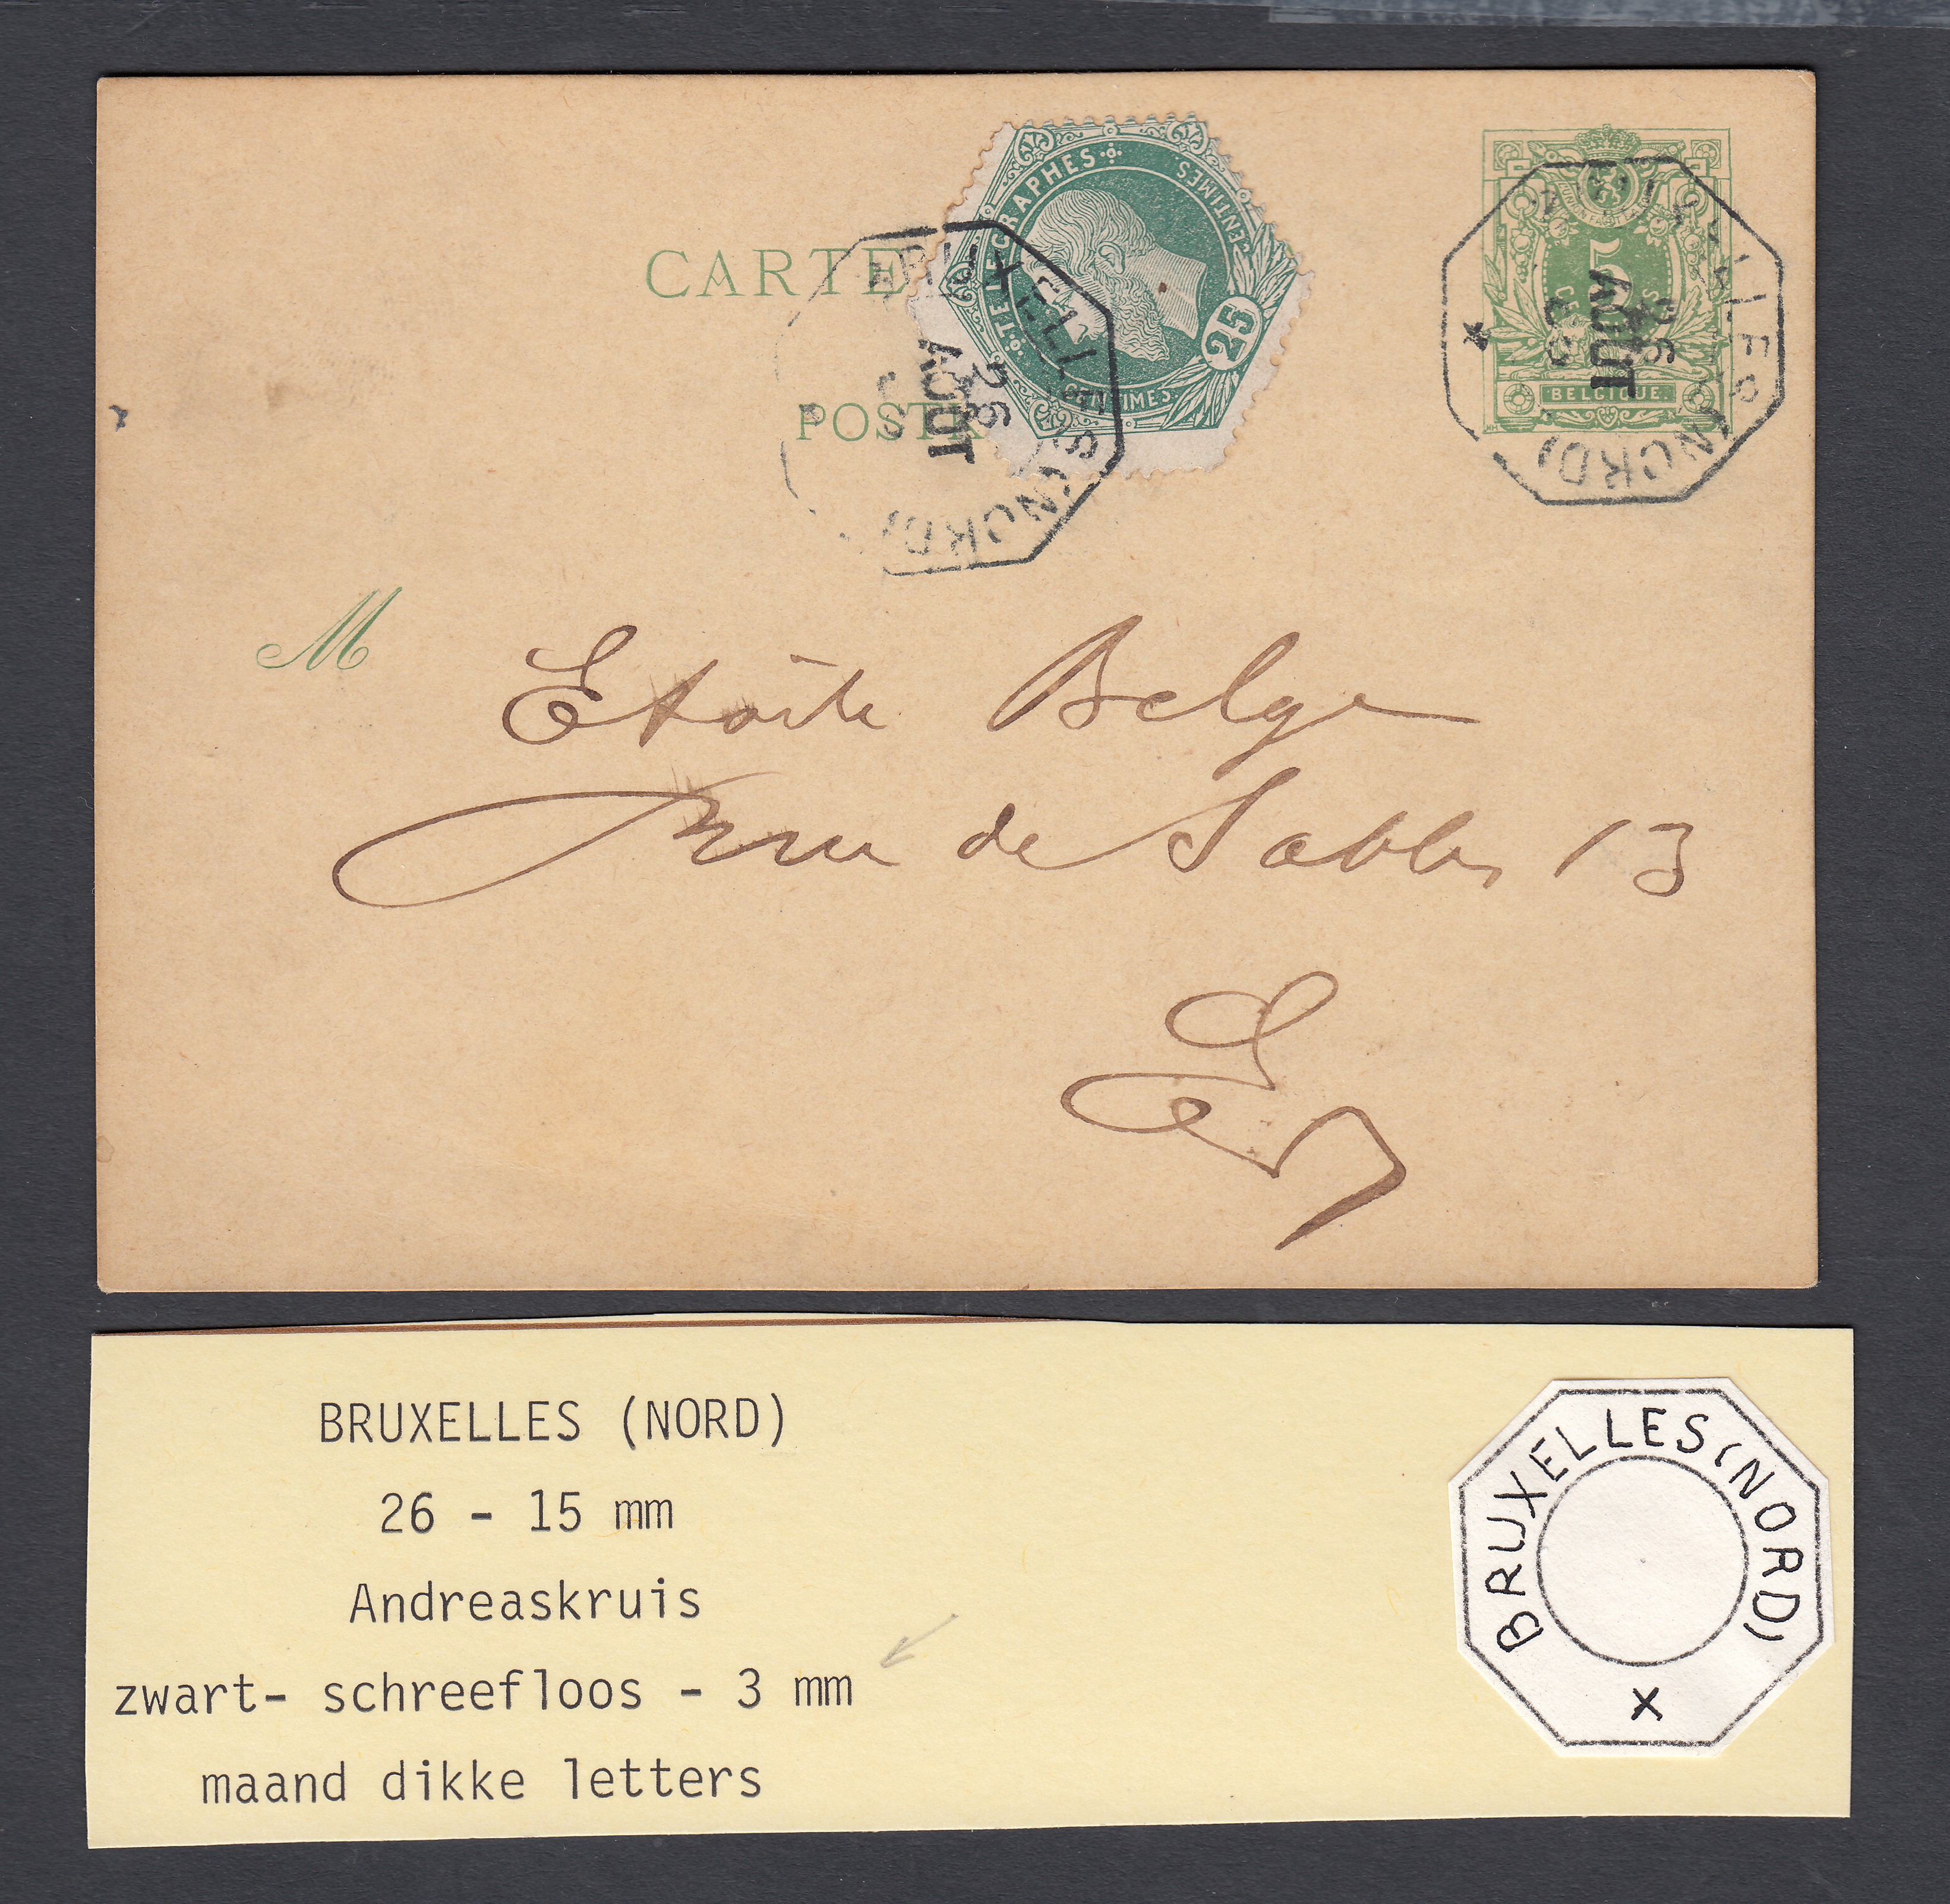 CARTE
POSTA
TÉLÉGRAPHES
CENTIMES
25
CENTIMES
5
BELGIQUE.
BRUXELLES (NORD)
26
AOUT
(NORD)
26
AOUT
M Etoile Belge
rue de Sables 13
BRUXELLES (NORD)
26 - 15 mm
Andreaskruis
zwart- schreefloos - 3 mm
maand dikke letters
BRUXELLES (NORD)
X